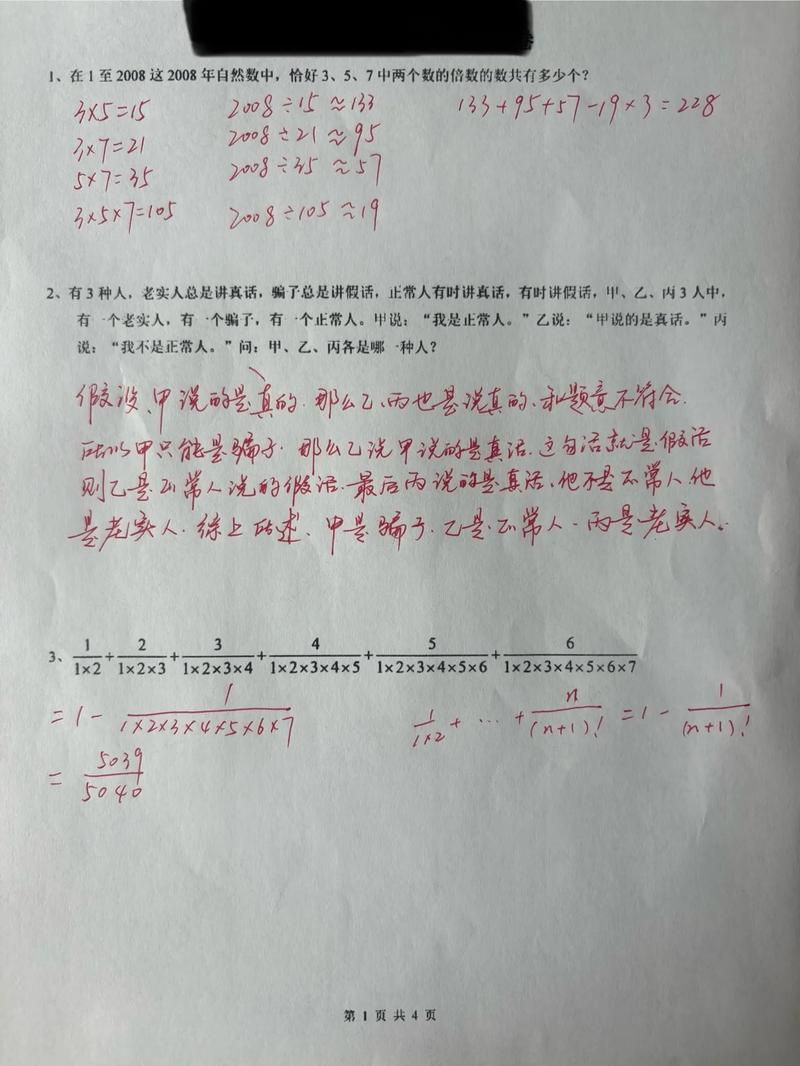 1、在 1 至 2008 这 2008 年自然数中，恰好 3、5、7 中两个数的倍数的数共有多少个？
3×5=15 2008÷15≈133 133+95+57-19×3=228
3×7=21 2008÷21≈95
5×7=35 2008÷35≈57
3×5×7=105 2008÷105≈19
2、有 3 种人，老实人总是讲真话，骗子总是讲假话，正常人有时讲真话，有时讲假话，甲、乙、丙 3 人中，
有一个老实人，有一个骗子，有一个正常人。甲说：“我是正常人。”乙说：“甲说的是真话。”丙
说：“我不是正常人。”问：甲、乙、丙各是哪一种人？
假设、甲说的是真的. 那么乙、丙也是说真的、和题意不符合.
所以甲只能是骗子. 那么乙说甲说的是真话. 这句话就是假话
则乙是正常人说的假话. 最后丙说的是真话、他不是正常人他
是老实人. 综上所述、甲是骗子. 乙是正常人. 丙是老实人。
3、1/(1×2) + 2/(1×2×3) + 3/(1×2×3×4) + 4/(1×2×3×4×5) + 5/(1×2×3×4×5×6) + 6/(1×2×3×4×5×6×7)
= 1 - 1/(1×2×3×4×5×6×7) 1/(1×2) + … + n/(n+1)! = 1 - 1/(n+1)!
= 5039/5040
第 1 页 共 4 页